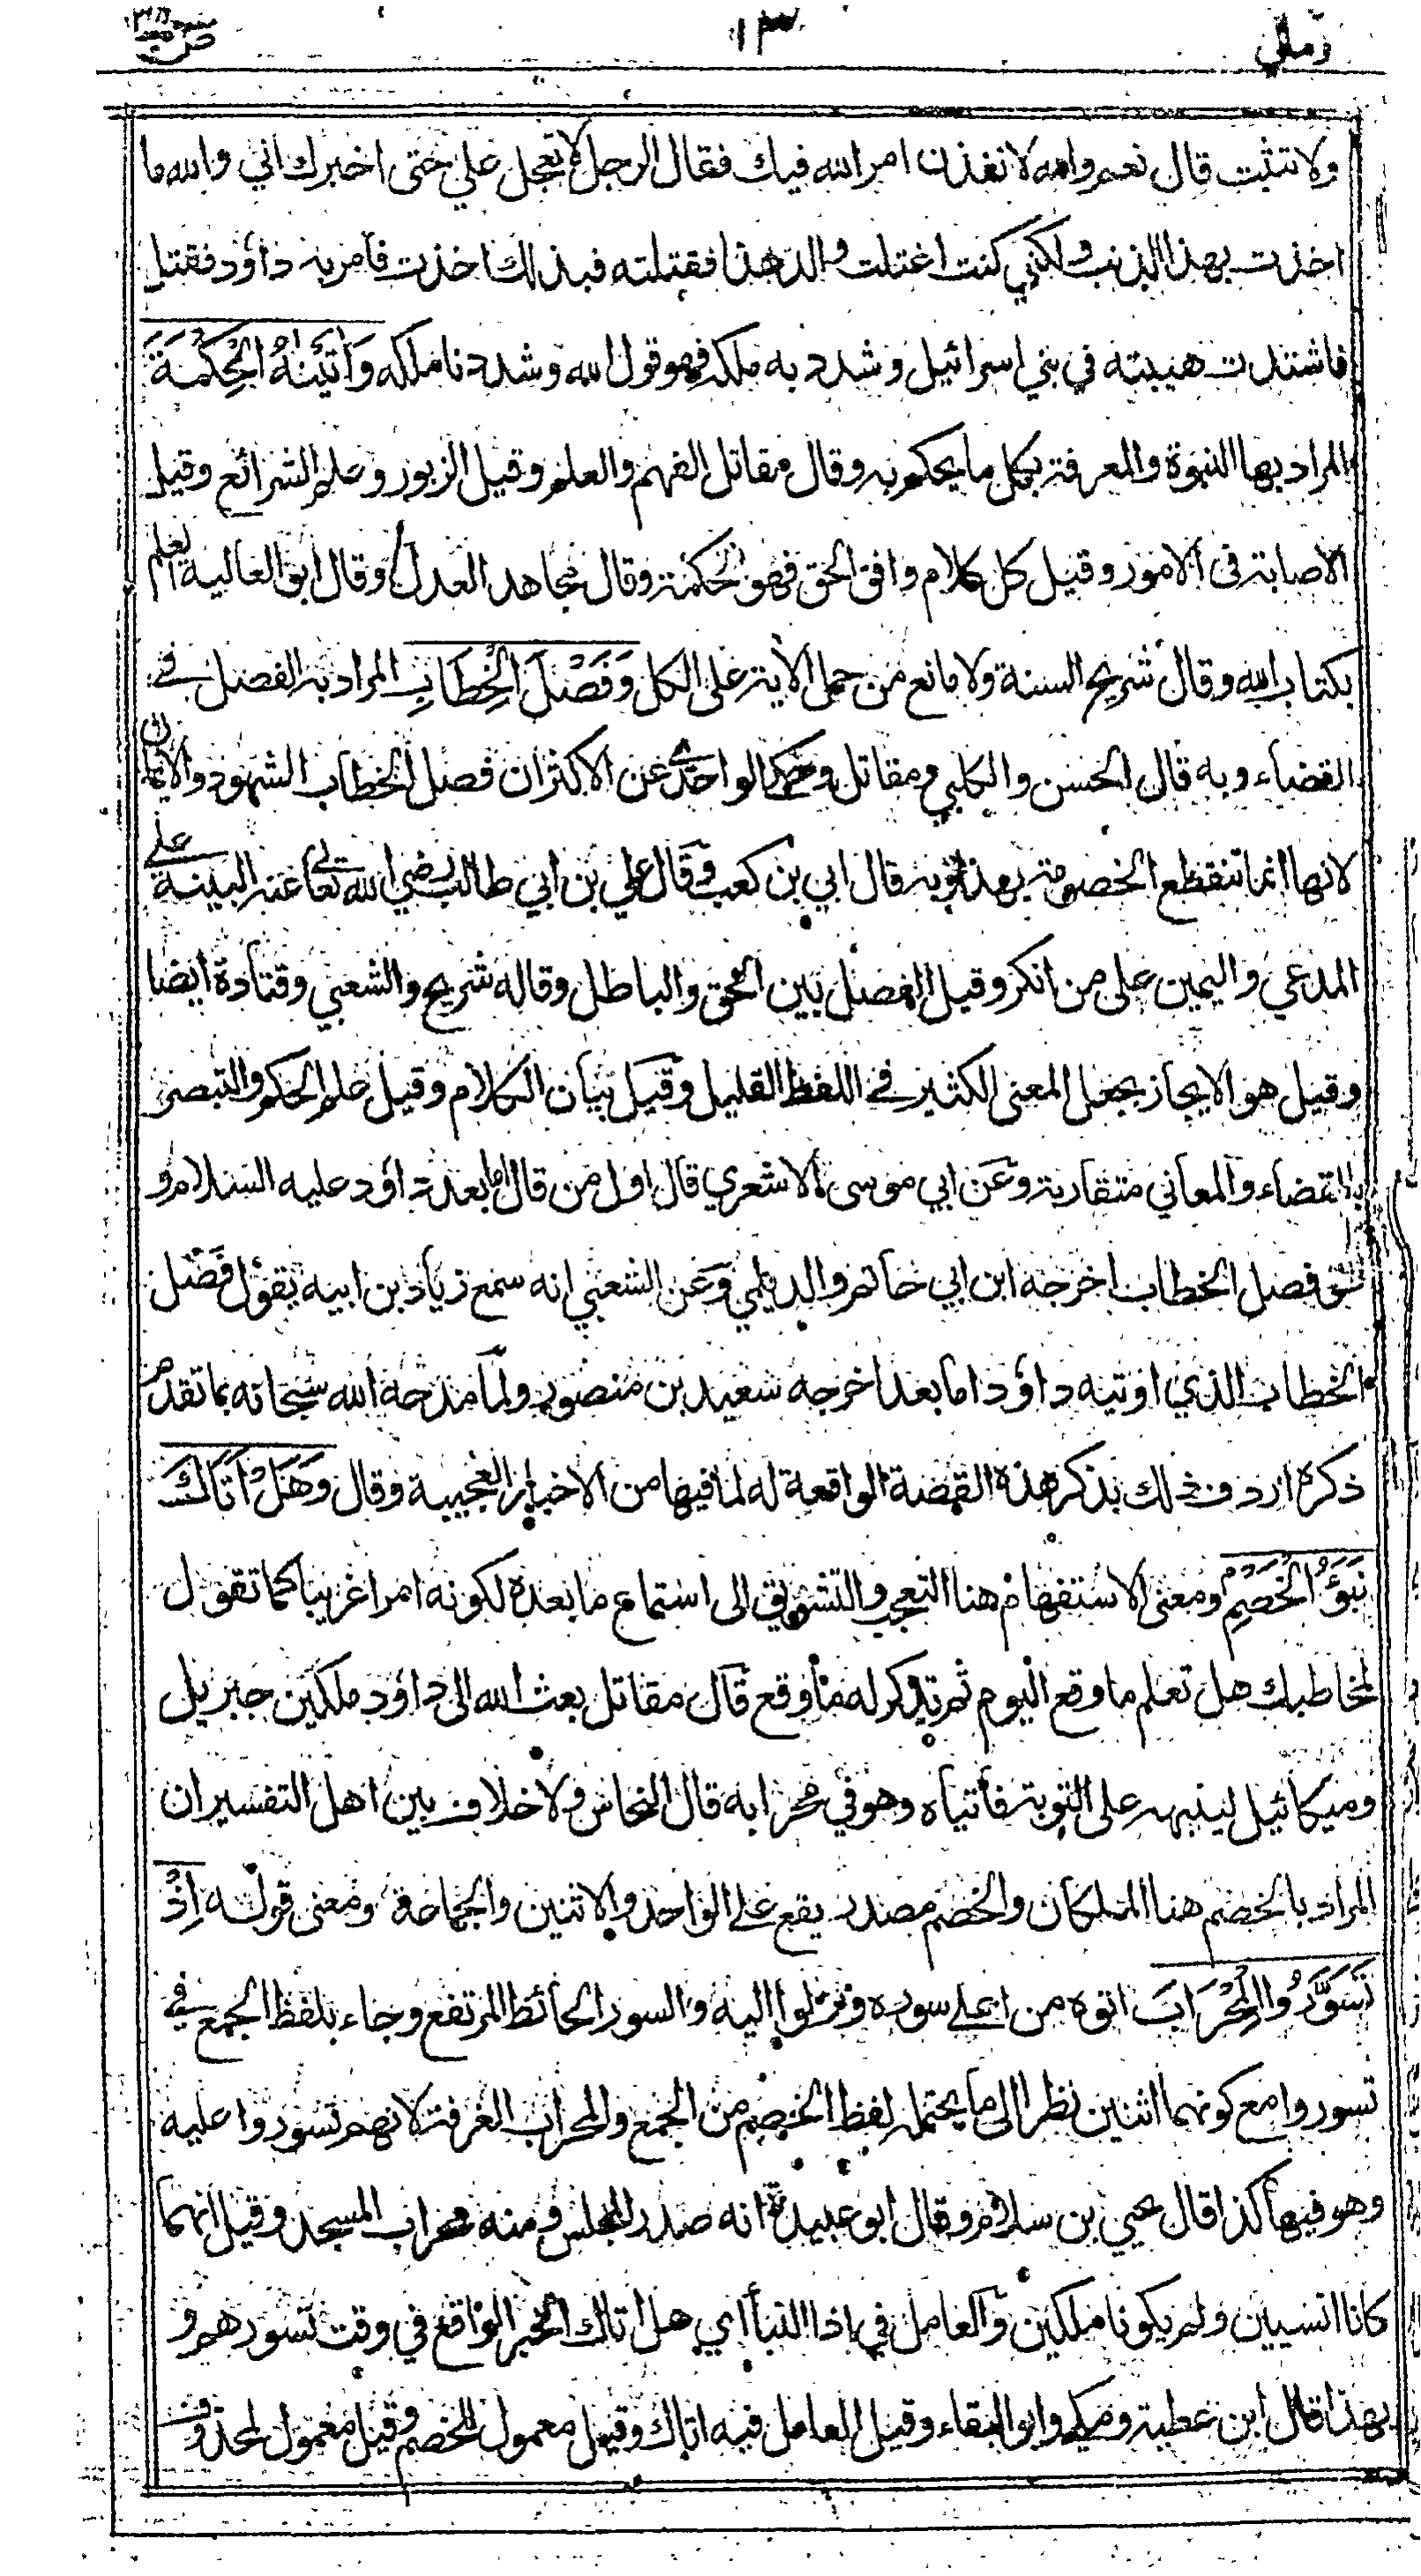 ومالي ١٣ ص
ولا تثبت قال نعم والله لانفذن امر الله فيك فقال الرجل لا تعجل علي حتى اخبرك اني والله ما
اخذت بهذا الذنب ولكني كنت اغتلت والد هذا فقتلته فبذلك اخذت فأمر به داؤد فقتل
فاشتدت هيبته في بني اسرائيل وشدد به ملكه فهو قول الله وشددنا ملكه وَاٰتَيْنٰهُ الْحِكْمَةَ
المراد بها النبوة والمعرفة بكل ما يحكم به وقال مقاتل الفهم والعلم وقيل الزبور وعلم الشرائع وقيل
الاصابة فى الامور وقيل كل كلام وافق الحق فهو الحكمة وقال مجاهد العدل وقال ابو العالية العلم
بكتاب الله وقال شريح السنة ولا مانع من حمل الأية على الكل وَفَصْلَ الْخِطَابِ المراد به الفصل في
القضاء وبه قال الحسن والكلبي ومقاتل وحكى الواحدي عن الاكثر ان فصل الخطاب الشهود والايمان
لانها انما تنقطع الخصومة بهذا وبه قال ابي بن كعب وقال علي بن ابي طالب رضي الله تعالى عنه البينة على
المدعي واليمين على من انكر وقيل الفصل بين الحق والباطل وقاله شريح والشعبي وقتادة ايضا
وقيل هو الايجاز بجعل المعنى الكثير في اللفظ القليل وقيل بيان الكلام وقيل علم الحكم والتبصر
بالقضاء والمعاني متقاربة وعن ابي موسى الاشعري قال اول من قال اما بعد داؤد عليه السلام و
هو فصل الخطاب اخرجه ابن ابي حاتم والديلمي وعن الشعبي انه سمع زياد بن ابيه يقول فصل
الخطاب الذي اوتيه داؤد اما بعد اخرجه سعيد بن منصور ولما مدحه الله سبحانه بما تقدم
ذكره اردف ذلك بذكر هذه القصة الواقعة له لما فيها من الاخبار العجيبة وقال وَهَلْ اَتَاكَ
نَبَؤُ الْخَصْمِ ومعنى الاستفهام هنا التعجب والتشويق الى استماع ما بعده لكونه امرا غريبا كما تقول
لمخاطبك هل تعلم ما وقع اليوم ثم تذكر له ما وقع قال مقاتل بعث الله الى داؤد ملكين جبريل
وميكائيل لينبهه على التوبة فأتياه وهو في محرابه قال النحاس ولا خلاف بين اهل التفسير ان
المراد بالخصم هنا الملكان والخصم مصدر يقع على الواحد والاثنين والجماعة ومعنى قوله اِذْ
تَسَوَّرُوا الْمِحْرَابَ اتوه من اعلى سوره ونزلوا اليه والسور الحائط المرتفع وجاء بلفظ الجمع في
تسوروا مع كونهما اثنين نظرا الى ما يحتمله لفظ الخصم من الجمع والمحراب الغرفة لانهم تسوروا عليه
وهو فيها كذا قال يحيى بن سلام وقال ابو عبيدة انه صدر المجلس ومنه محراب المسجد وقيل انهما
كانا انسيين ولم يكونا ملكين والعامل في اذا النبأ اي هل اتاك الخبر الواقع في وقت تسورهم و
بهذا قال ابن عطية ومكي وابو البقاء وقيل العامل فيه اتاك وقيل معمول للخصم وقيل معمول لمحذوف